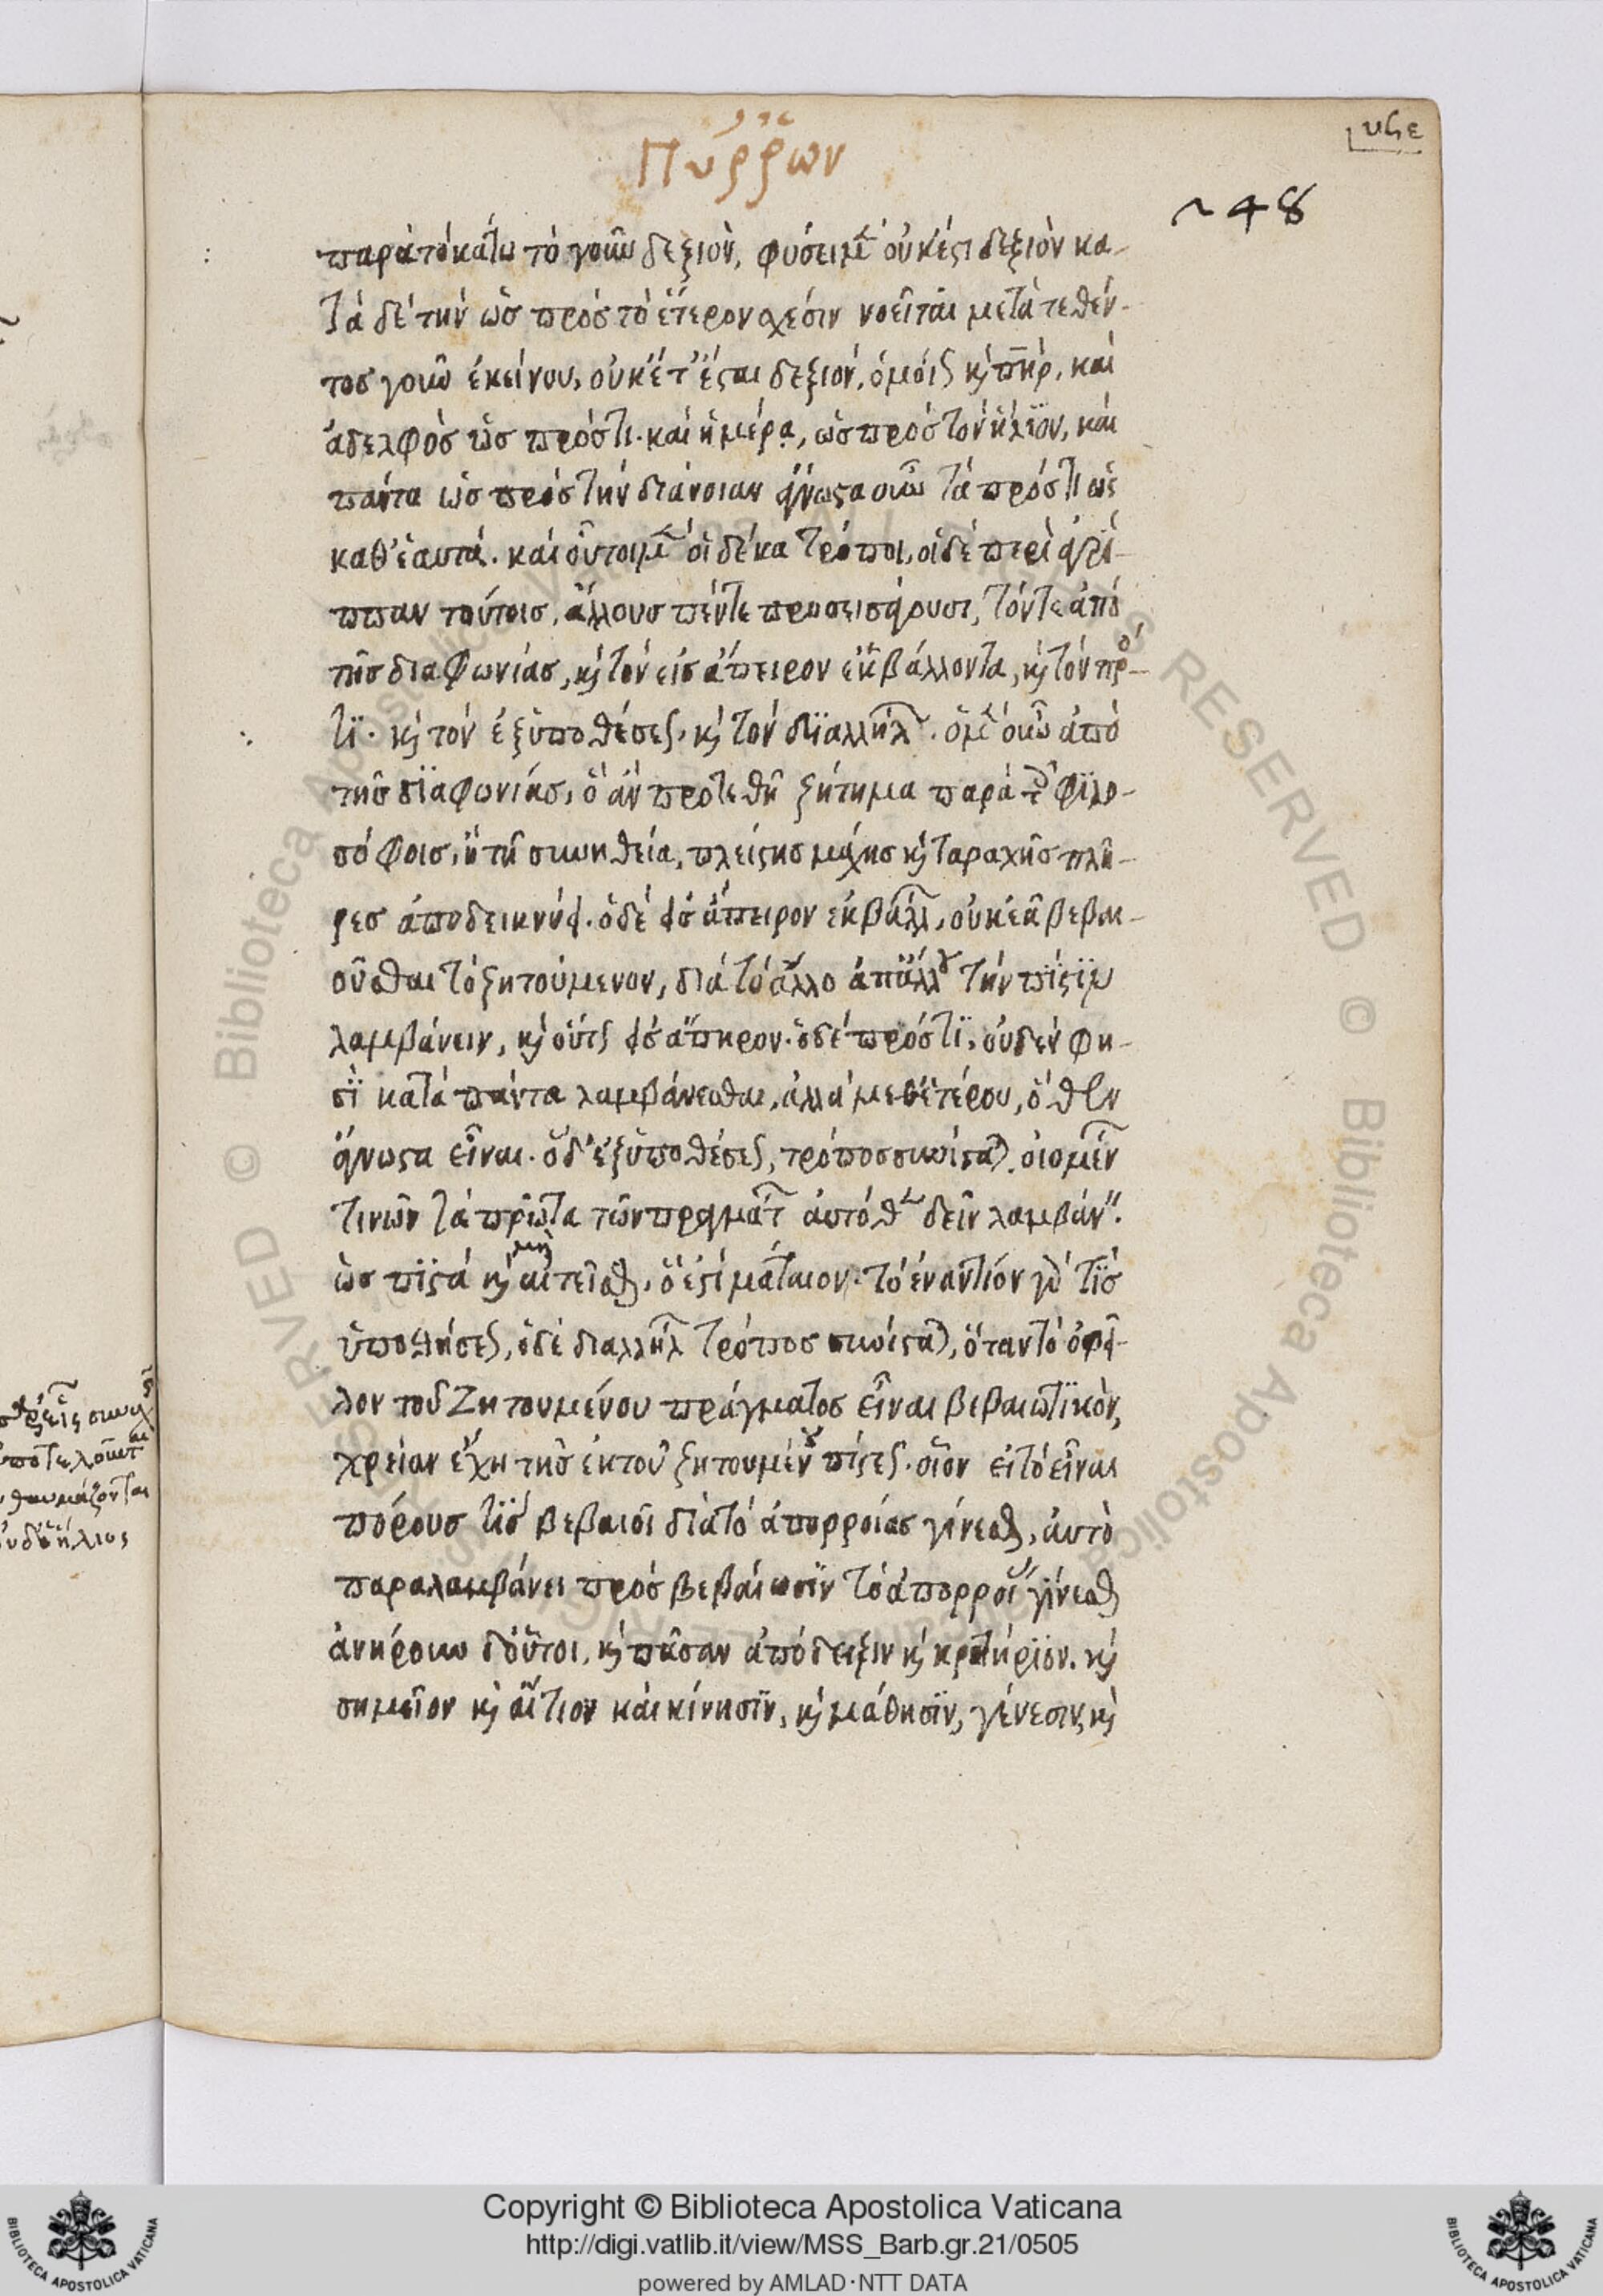 Πύῤῥων
υϟε
~48
παρὰ τὸ κάτω τὸ γοῦν δεξιὸν, φύσει μὲν οὐκ έστι δεξιὸν κα-
τὰ δὲ τὴν ὡς πρὸς τὸ ἕτερον σχέσιν νοεῖται μετατεθέν-
τος γοῦν ἐκείνου, οὐκέτ' ἔσται δεξιόν, ὁμοίως καὶ πὴρ, καὶ
ἀδελφὸς ὡς πρός τι. καὶ ἡμέρα, ὡς πρὸς τὸν ἥλιον, καὶ
πάντα ὡς πρὸς τὴν διάνοιαν ἄγνωστα οὖν τὰ πρός τι ὡς
καθ' ἑαυτά. καὶ οὗτοι μὲν οἱ δέκα τρόποι, οἱ δὲ περὶ ἀγρί-
ππαν τούτοις, ἄλλους πέντε προσεισάγουσι, τόν τε ἀπὸ
τῆς διαφωνίας, καὶ τὸν εἰς ἄπειρον ἐκβάλλοντα, καὶ τὸν πρός
τι. καὶ τὸν ἐξ ὑποθέσεως, καὶ τὸν δι' ἀλλήλων. ὁ μὲν οὖν ἀπὸ
τῆς διαφωνίας, ὃ ἂν προτεθῇ ζήτημα παρὰ τοῖς φιλο-
σόφοις, ἢ τῇ συνηθεία, πλείστης μάχης καὶ ταραχῆς πλῆ-
ρες ἀποδεικνύει. ὁ δὲ εἰς ἄπειρον ἐκβάλλων, οὐκ ἐᾶ βεβαι-
οῦσθαι τὸ ζητούμενον, διὰ τὸ ἄλλο ἀπ' ἄλλου τὴν πίστιν
λαμβάνειν, καὶ οὕτως εἰς ἄπηρον. ὁ δὲ πρός τι, οὐδέν φη-
σι κατὰ πάντα λαμβάνεσθαι, ἀλλὰ μεθ' ἑτέρου, ὅθεν
ἄγνωστα εἶναι. ὁ δ' ἐξ ὑποθέσεως, τρόπος συνίσταται, οἰομένων
τινῶν τὰ πρῶτα τῶν πραγμάτων αὐτόθεν δεῖν λαμβάνειν.
ὡς πιστὰ καὶ μὴ αἰτεῖσθαι, ὅ ἐστι μάταιον. τὸ ἐναντίον γάρ τις
ὑποθήσεται, ὁ δὲ διαλλήλων τρόπος συνίσταται, ὅταν τὸ ὀφεῖ-
λον τοῦ ζητουμένου πράγματος εἶναι βεβαιωτικὸν,
χρείαν ἔχη τῆς ἐκ τοῦ ζητουμένου πίστεως. οἷον εἰ τὸ εἶναι
πόρους τις βεβαιοῖ διὰ τὸ ἀπορροίας γίνεσθαι, αὐτὸ
παραλαμβάνει πρὸς βεβαίωσιν τὸ ἀπορροίας γίνεσθαι
ἀνήρουν δ' οὗτοι, καὶ πᾶσαν ἀπόδειξιν καὶ κριτήριον. καὶ
σημεῖον καὶ αἴτιον καὶ κίνησιν, καὶ μάθησιν, γένεσιν, καὶ
θαυμάζονται
Copyright © Biblioteca Apostolica Vaticana
http://digi.vatlib.it/view/MSS_Barb.gr.21/0505
powered by AMLAD·NTT DATA